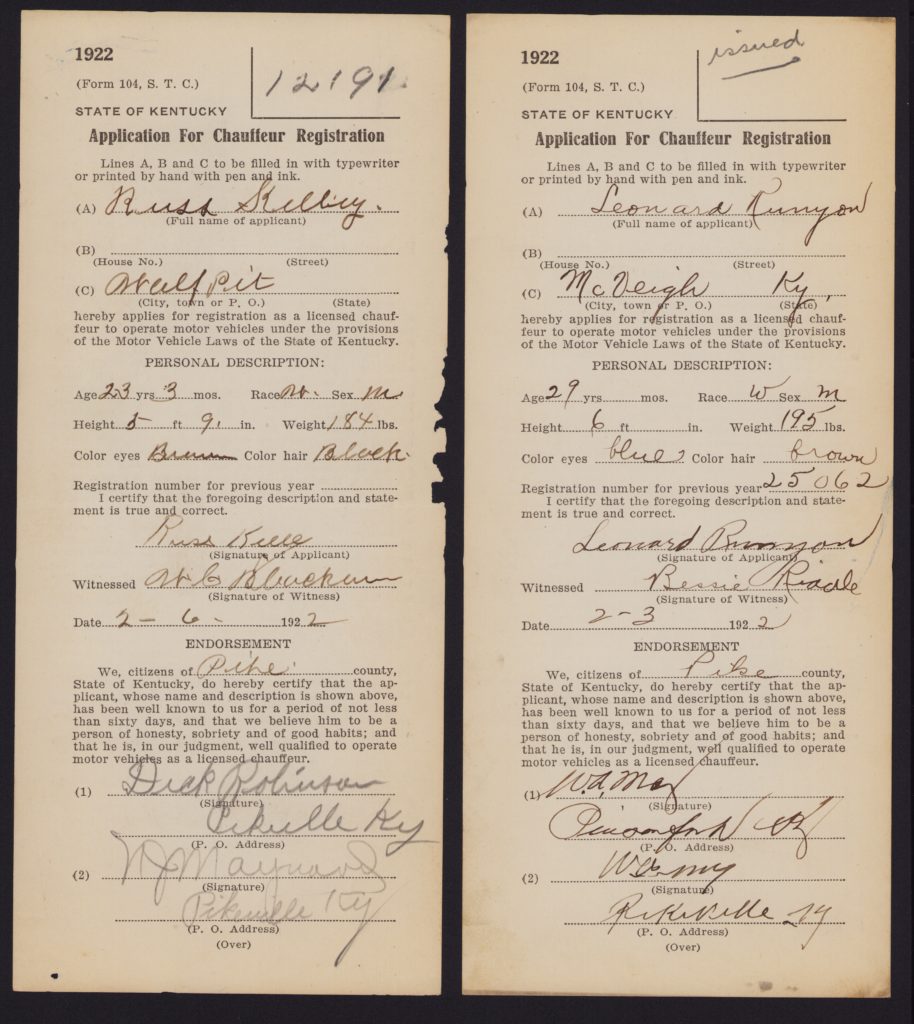 1922
12191.
(Form 104, S. T. C.)
STATE OF KENTUCKY
Application For Chauffeur Registration
Lines A, B and C to be filled in with typewriter
or printed by hand with pen and ink.
(A) Russ Kelley.
(Full name of applicant)
(B)
(House No.) (Street)
(C) Wolf Pit
(City, town or P. O.) (State)
hereby applies for registration as a licensed chauf-
feur to operate motor vehicles under the provisions
of the Motor Vehicle Laws of the State of Kentucky.
PERSONAL DESCRIPTION:
Age 23 yrs 3 mos. Race W. Sex M
Height 5 ft 9. in. Weight 184 lbs.
Color eyes Brown Color hair Black.
Registration number for previous year
I certify that the foregoing description and state-
ment is true and correct.
Russ
(Signature of Applicant)
Witnessed W C Blackburn
(Signature of Witness)
Date 2 - 6 - 1922
ENDORSEMENT
We, citizens of Pike county,
State of Kentucky, do hereby certify that the ap-
plicant, whose name and description is shown above,
has been well known to us for a period of not less
than sixty days, and that we believe him to be a
person of honesty, sobriety and of good habits; and
that he is, in our judgment, well qualified to operate
motor vehicles as a licensed chauffeur.
(1) Dick Robinson
(Signature)
Pikeville Ky
(P. O. Address)
(2) Maynard
(Signature)
Pikeville Ky
(P. O. Address)
(Over)
1922
issued
(Form 104, S. T. C.)
STATE OF KENTUCKY
Application For Chauffeur Registration
Lines A, B and C to be filled in with typewriter
or printed by hand with pen and ink.
(A) Leonard Runyon
(Full name of applicant)
(B)
(House No.) (Street)
(C) McVeigh Ky,
(City, town or P. O.) (State)
hereby applies for registration as a licensed chauf-
feur to operate motor vehicles under the provisions
of the Motor Vehicle Laws of the State of Kentucky.
PERSONAL DESCRIPTION:
Age 29 yrs. mos. Race W Sex M
Height 6 ft in. Weight 195 lbs.
Color eyes blue Color hair brown
Registration number for previous year 25062
I certify that the foregoing description and state-
ment is true and correct.
Leonard Runyon
(Signature of Applicant)
Witnessed Bessie Riddle
(Signature of Witness)
Date 2-3 1922
ENDORSEMENT
We, citizens of Pike county,
State of Kentucky, do hereby certify that the ap-
plicant, whose name and description is shown above,
has been well known to us for a period of not less
than sixty days, and that we believe him to be a
person of honesty, sobriety and of good habits; and
that he is, in our judgment, well qualified to operate
motor vehicles as a licensed chauffeur.
(1) May
(Signature)
(P. O. Address)
(2)
(Signature)
Pikeville Ky
(P. O. Address)
(Over)